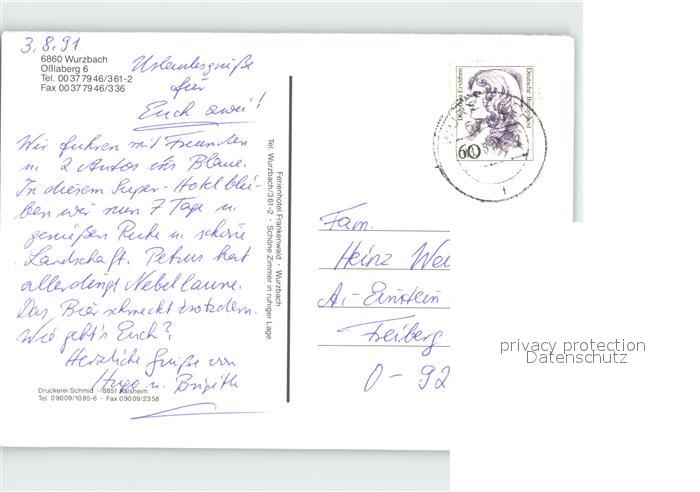 3.8.91
6860 Wurzbach
Oßlaberg 6
Tel. 00377946/361-2
Fax 00377946/336
Urlaubsgrüße
für
Euch zwei!
Wir fuhren mit Freunden
u. 2 Autos ins Blaue.
In diesem Super-Hotel blei-
ben wir nun 7 Tage u.
genießen Ruhe u. schöne
Landschaft. Petrus hat
allerdings Nebellaune.
Das Bier schmeckt trotzdem.
Wie geht's Euch?
Herzliche Grüße von
Hugo u. Brigitte
Druckerei Schmid · 8851 Kaisheim
Tel. 09009/1085-6 · Fax 09009/2358
Ferienhotel Frankenwald · Wurzbach
Tel. Wurzbach/361-2 · Schöne Zimmer in ruhiger Lage
Deutsche Bundespost
60
Fam.
Heinz
A.-Einstein
Freiberg
O-92
privacy protection
Datenschutz